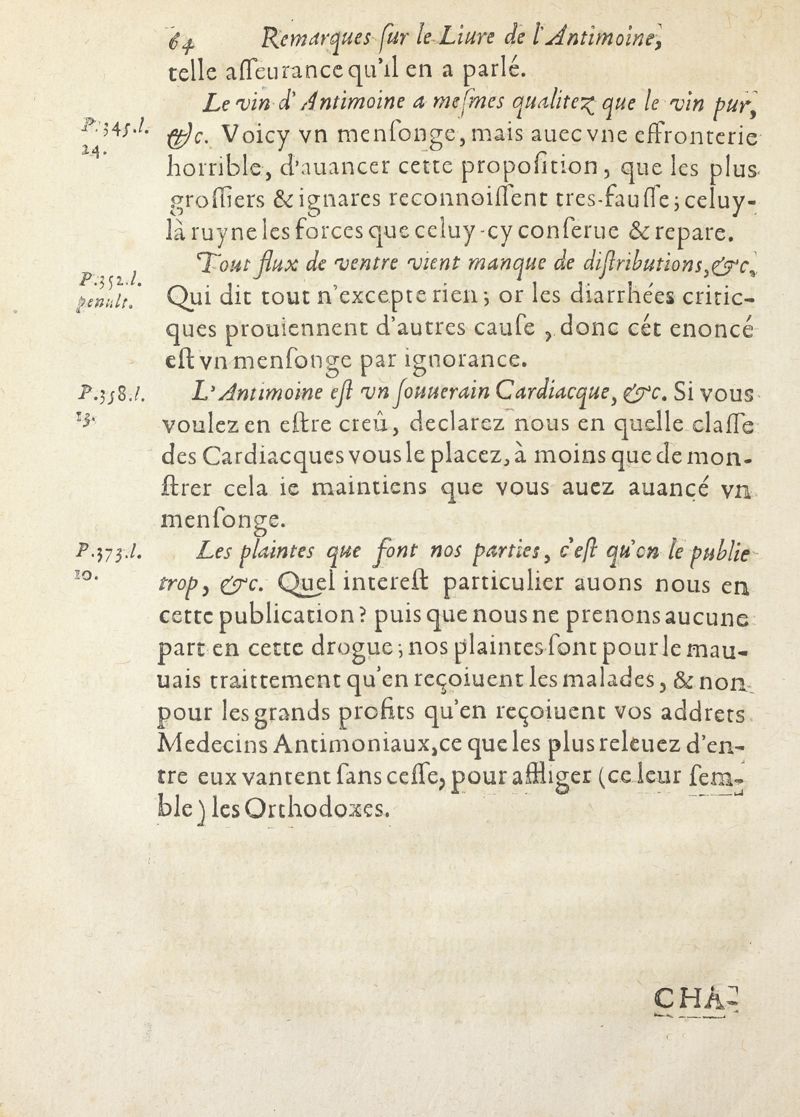 64 Remarques ſur le Liure de l'Antimoine,
telle aſſeurance qu'il en a parlé.
Le vin d'Antimoine a meſmes qualitez que le vin pur,
P. 345. l.
24.
&c. Voicy vn menſonge, mais auec vne effronterie
horrible, d'auancer cette propoſition, que les plus
groſſiers & ignares reconnoiſſent tres-fauſſe; celuy-
là ruyne les forces que celuy-cy conſerue & repare.
Tout flux de ventre vient manque de diſtributions, &c.
P. 352. l.
penult.
Qui dit tout n'excepte rien; or les diarrhées critic-
ques prouiennent d'autres cauſe, donc cét enoncé
eſt vn menſonge par ignorance.
P. 358. l.
13.
L'Antimoine eſt vn ſouuerain Cardiacque, &c. Si vous
voulez en eſtre creû, declarez nous en quelle claſſe
des Cardiacques vous le placez, à moins que de mon-
ſtrer cela ie maintiens que vous auez auancé vn
menſonge.
P. 373. l.
10.
Les plaintes que font nos parties, c'eſt qu'on le publie
trop, &c. Quel intereſt particulier auons nous en
cette publication? puis que nous ne prenons aucune
part en cette drogue; nos plaintes ſont pour le mau-
uais traittement qu'en reçoiuent les malades, & non
pour les grands profits qu'en reçoiuent vos addrets
Medecins Antimoniaux, ce que les plus releuez d'en-
tre eux vantent ſans ceſſe, pour affliger (ce leur ſem-
ble) les Orthodoxes.
CHA-